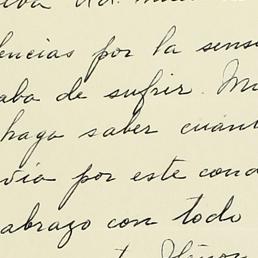 encias por la sens
aba de sufrir. Mu
haga saber cuánt
vía por este cond
abrazo con todo